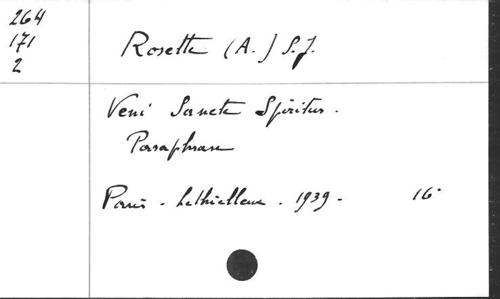 264
171
2
Rosette (A.) S.J.
Veni Sancte Spiritus.
Paraphrase
Paris - Lethielleux - 1939 - 16°